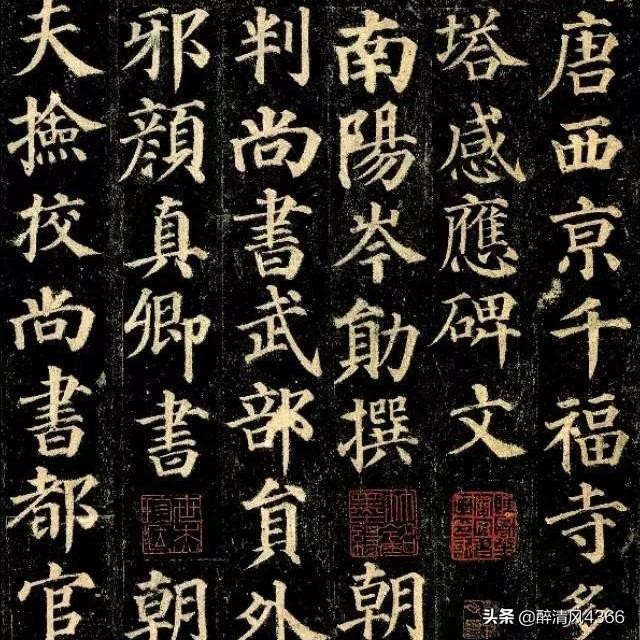 唐西京千福寺多
塔感應碑文
南陽岑勛撰 朝
判尚書武部員外
邪顏真卿書 朝
夫撿挍尚書都官
头条 @醉清风4366